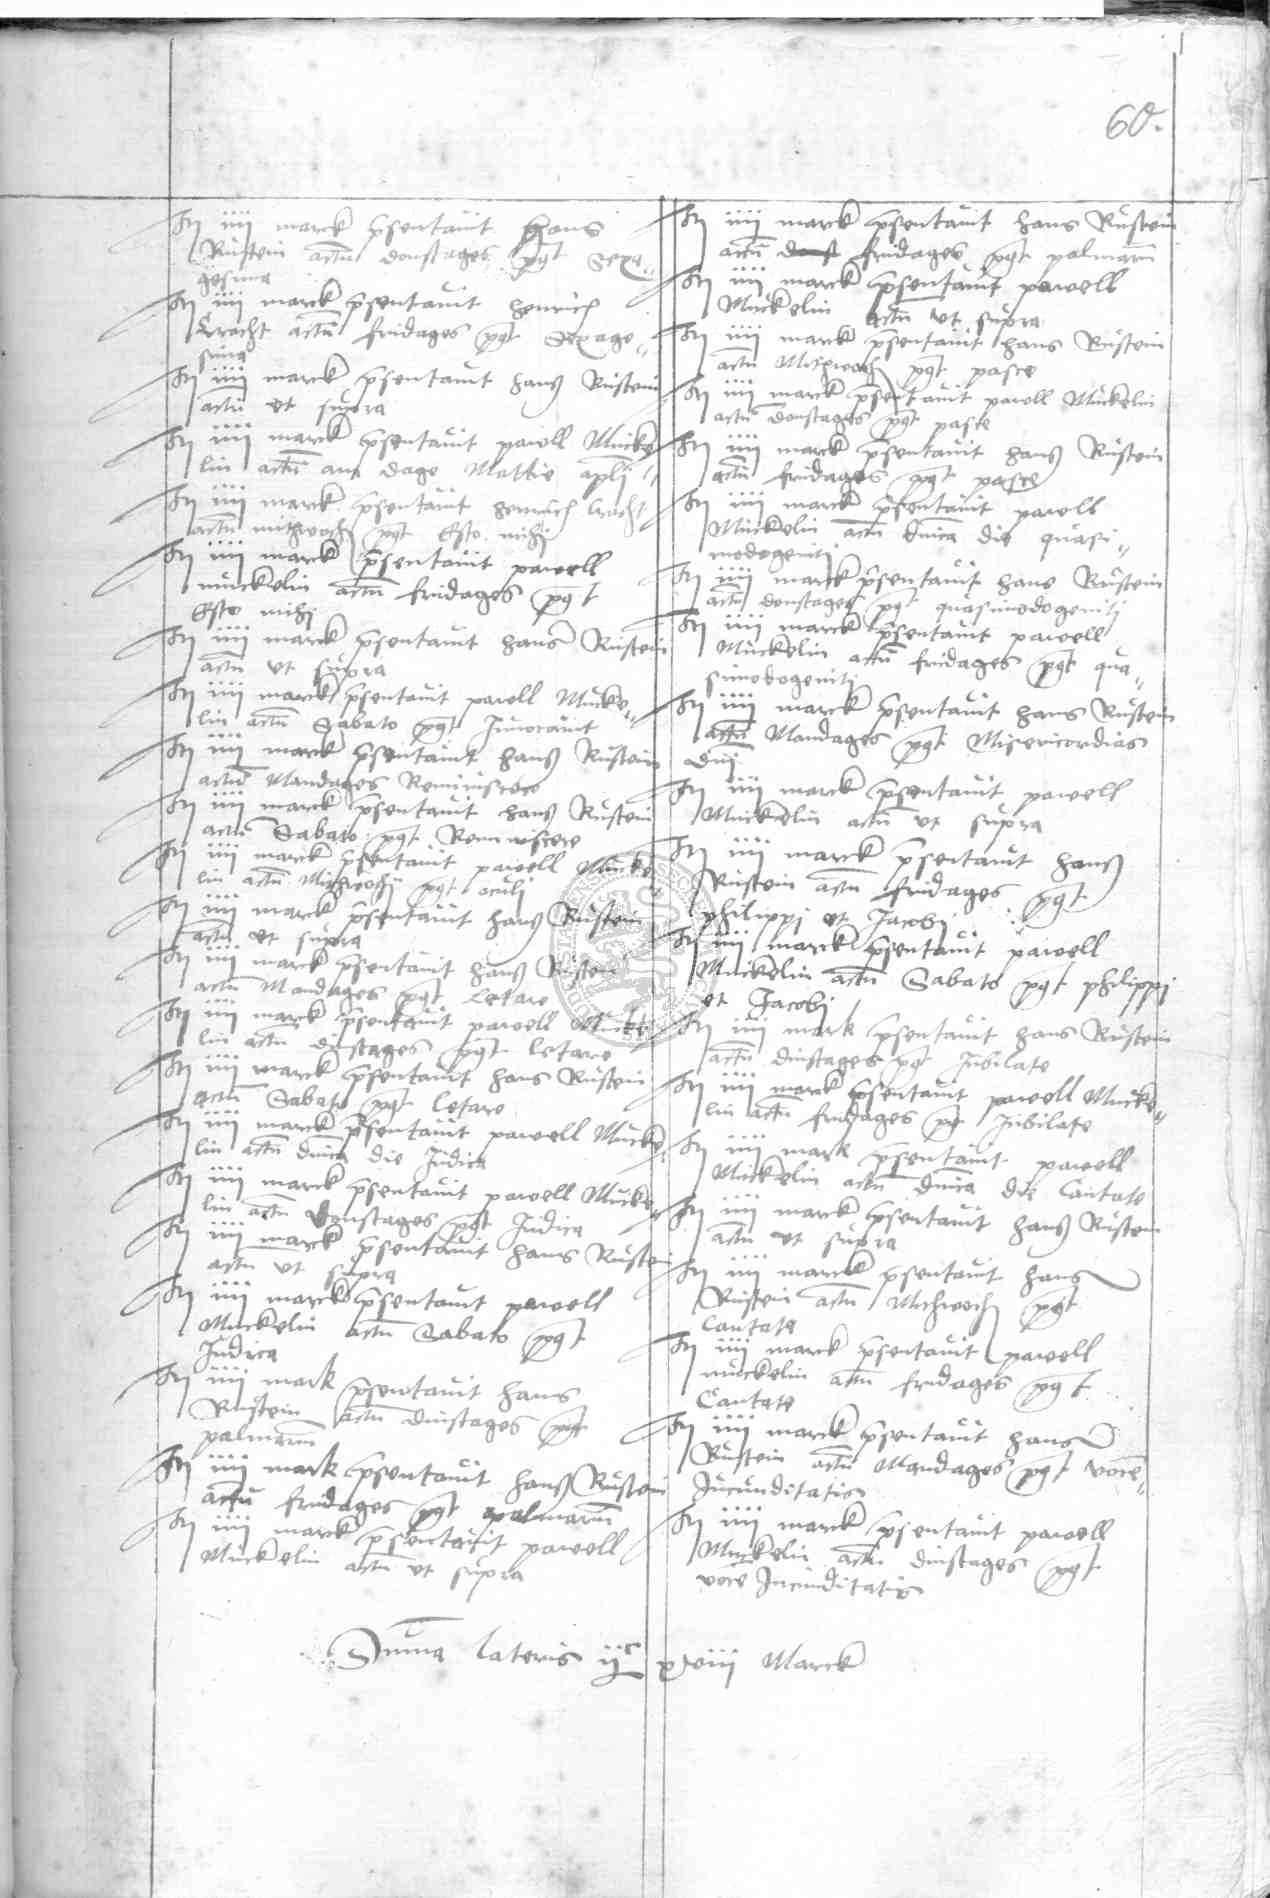 60.
Itm iiij marck psentavit Hans
Rustein actu donstages pgt Sexa„
gesima
Itm iiij marck psentavit Henrich
Kracht actu fridages pgt Sexage„
sima
Itm iiij marck psentavit Hans Rustein
actu ut supra
Itm iiij marck psentavit pawell Mucke„
lin actu am dage Mattie apli
Itm iiij marck psentavit Henrich Kracht
actu mithwoch pgt Esto mihi
Itm iiij marck psentavit pawell
muckelin actu fridages pgt
Esto mihi
Itm iiij marck psentavit Hans Rustein
actu ut supra
Itm iiij marck psentavit pawell Mucke„
lin actu Sabato pgt Invocavit
Itm iiij marck psentavit Hans Rustein
actu Mandages Reminiscere
Itm iiij marck psentavit Hans Rustein
actu Sabato pgt Reminiscere
Itm iiij marck psentavit pawell Mucke
lin actu Mithwoch pgt oculi
Itm iiij marck psentavit Hans Rustein
actu ut supra
Itm iiij marck psentavit Hans Rustein
actu Mandages pgt Letare
Itm iiij marck psentavit pawell Mucke
lin actu dinstages pgt letare
Itm iiij marck psentavit Hans Rustein
actu Sabato pgt letare
Itm iiij marck psentavit pawell Mucke„
lin actu dnica die Judica
Itm iiij marck psentavit pawell Mucke„
lin actu Donstages pgt Judica
Itm iiij marck psentavit Hans Rustein
actu ut supra
Itm iiij marck psentavit pawell
Muckelin actu Sabato pgt
Judica
Itm iiij mark psentavit Hans
Rustein actu dinstages pgt
palmarum
Itm iiij mark psentavit Hans Rustein
actu fridages pgt palmarum
Itm iiij marck psentavit pawell
Muckelin actu ut supra
Itm iiij marck psentavit Hans Rustein
actu donst fridages pgt palmarum
Itm iiij marck psentavit pawell
Muckelin actu ut supra
Itm iiij marck psentavit Hans Rustein
actu Mithwoch pgt pasce
Itm iiij marck psentavit pawell Muckelin
actu donstages pgt pasce
Itm iiij marck psentavit Hans Rustein
actu fridages pgt pasce
Itm iiij marck psentavit pawell
Muckelin actu dnica die quasi„
modogeniti
Itm iiij marck psentavit Hans Rustein
actu donstages pgt quasimodogeniti
Itm iiij marck psentavit pawell
Muckelin actu fridages pgt qua„
simodogeniti
Itm iiij marck psentavit Hans Rustein
actu Mandages pgt Misericordias
Dni
Itm iiij marck psentavit pawell
Muckelin actu ut supra
Itm iiij marck psentavit Hans
Rustein actu fridages pgt
philippi et Jacobi
Itm iiij marck psentavit pawell
Muckelin actu Sabato pgt philippi
et Jacobi
Itm iiij mark psentavit Hans Rustein
actu dinstages pgt Jubilate
Itm iiij marck psentavit pawell Mucke„
lin actu fridages pgt Jubilate
Itm iiij mark psentavit pawell
Muckelin actu dnica die Cantate
Itm iiij marck psentavit Hans Rustein
actu ut supra
Itm iiij marck psentavit Hans
Rustein actu Mithwoch pgt
Cantate
Itm iiij marck psentavit pawell
muckelin actu fridages pgt
Cantate
Itm iiij marck psentavit Hans
Rustein actu Mandages pgt voce„
Jucunditatis
Itm iiij marck psentavit pawell
Muckelin actu dinstages pgt
voce Jucunditatis
Suma lateris ijc xviij Marck